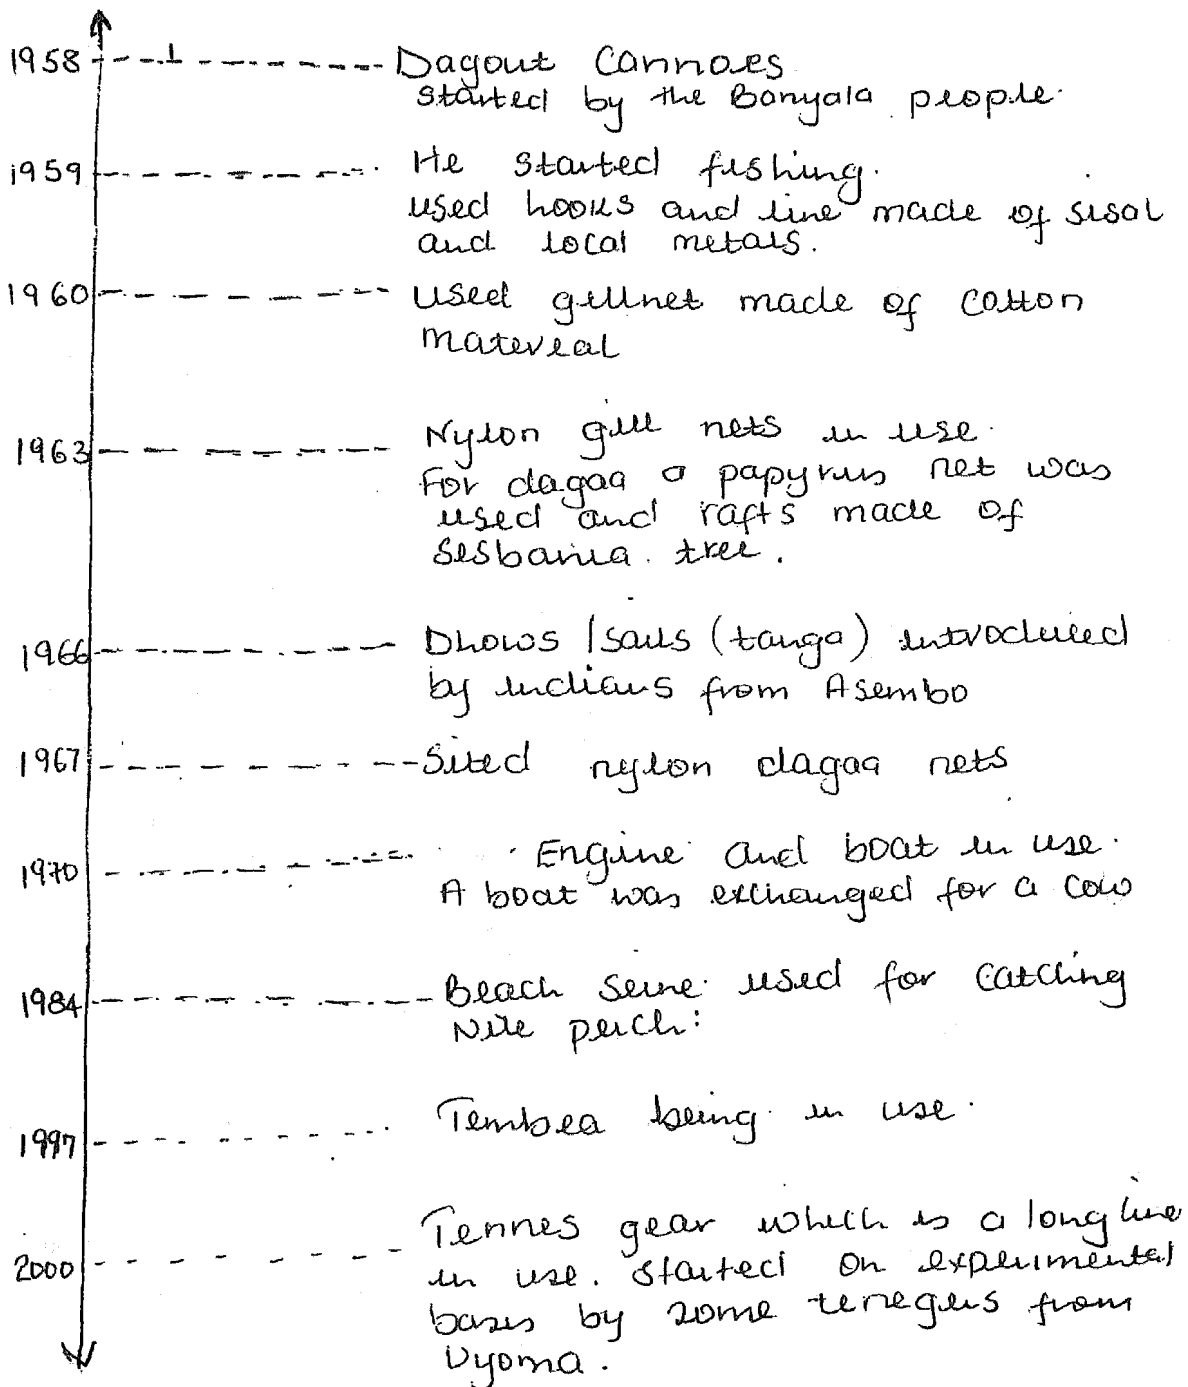 1958 Dagout Cannoes
started by the Banyala people.
1959 He started fishing.
used hooks and line made of sisal
and local metals.
1960 used gillnet made of cotton
matereal
1963 Nylon gill nets in use.
For dagaa a papyrus net was
used and rafts made of
Sesbania tree.
1966 Dhows / sails (tanga) introduced
by indians from Asembo
1967 Sited nylon dagaa nets
1970 Engine and boat in use.
A boat was exchanged for a cow
1984 Beach seine used for catching
Nile perch:
1997 Tembea being in use.
2000 Tennes gear which is a long line
in use. started on experimental
bases by some from
Uyoma.